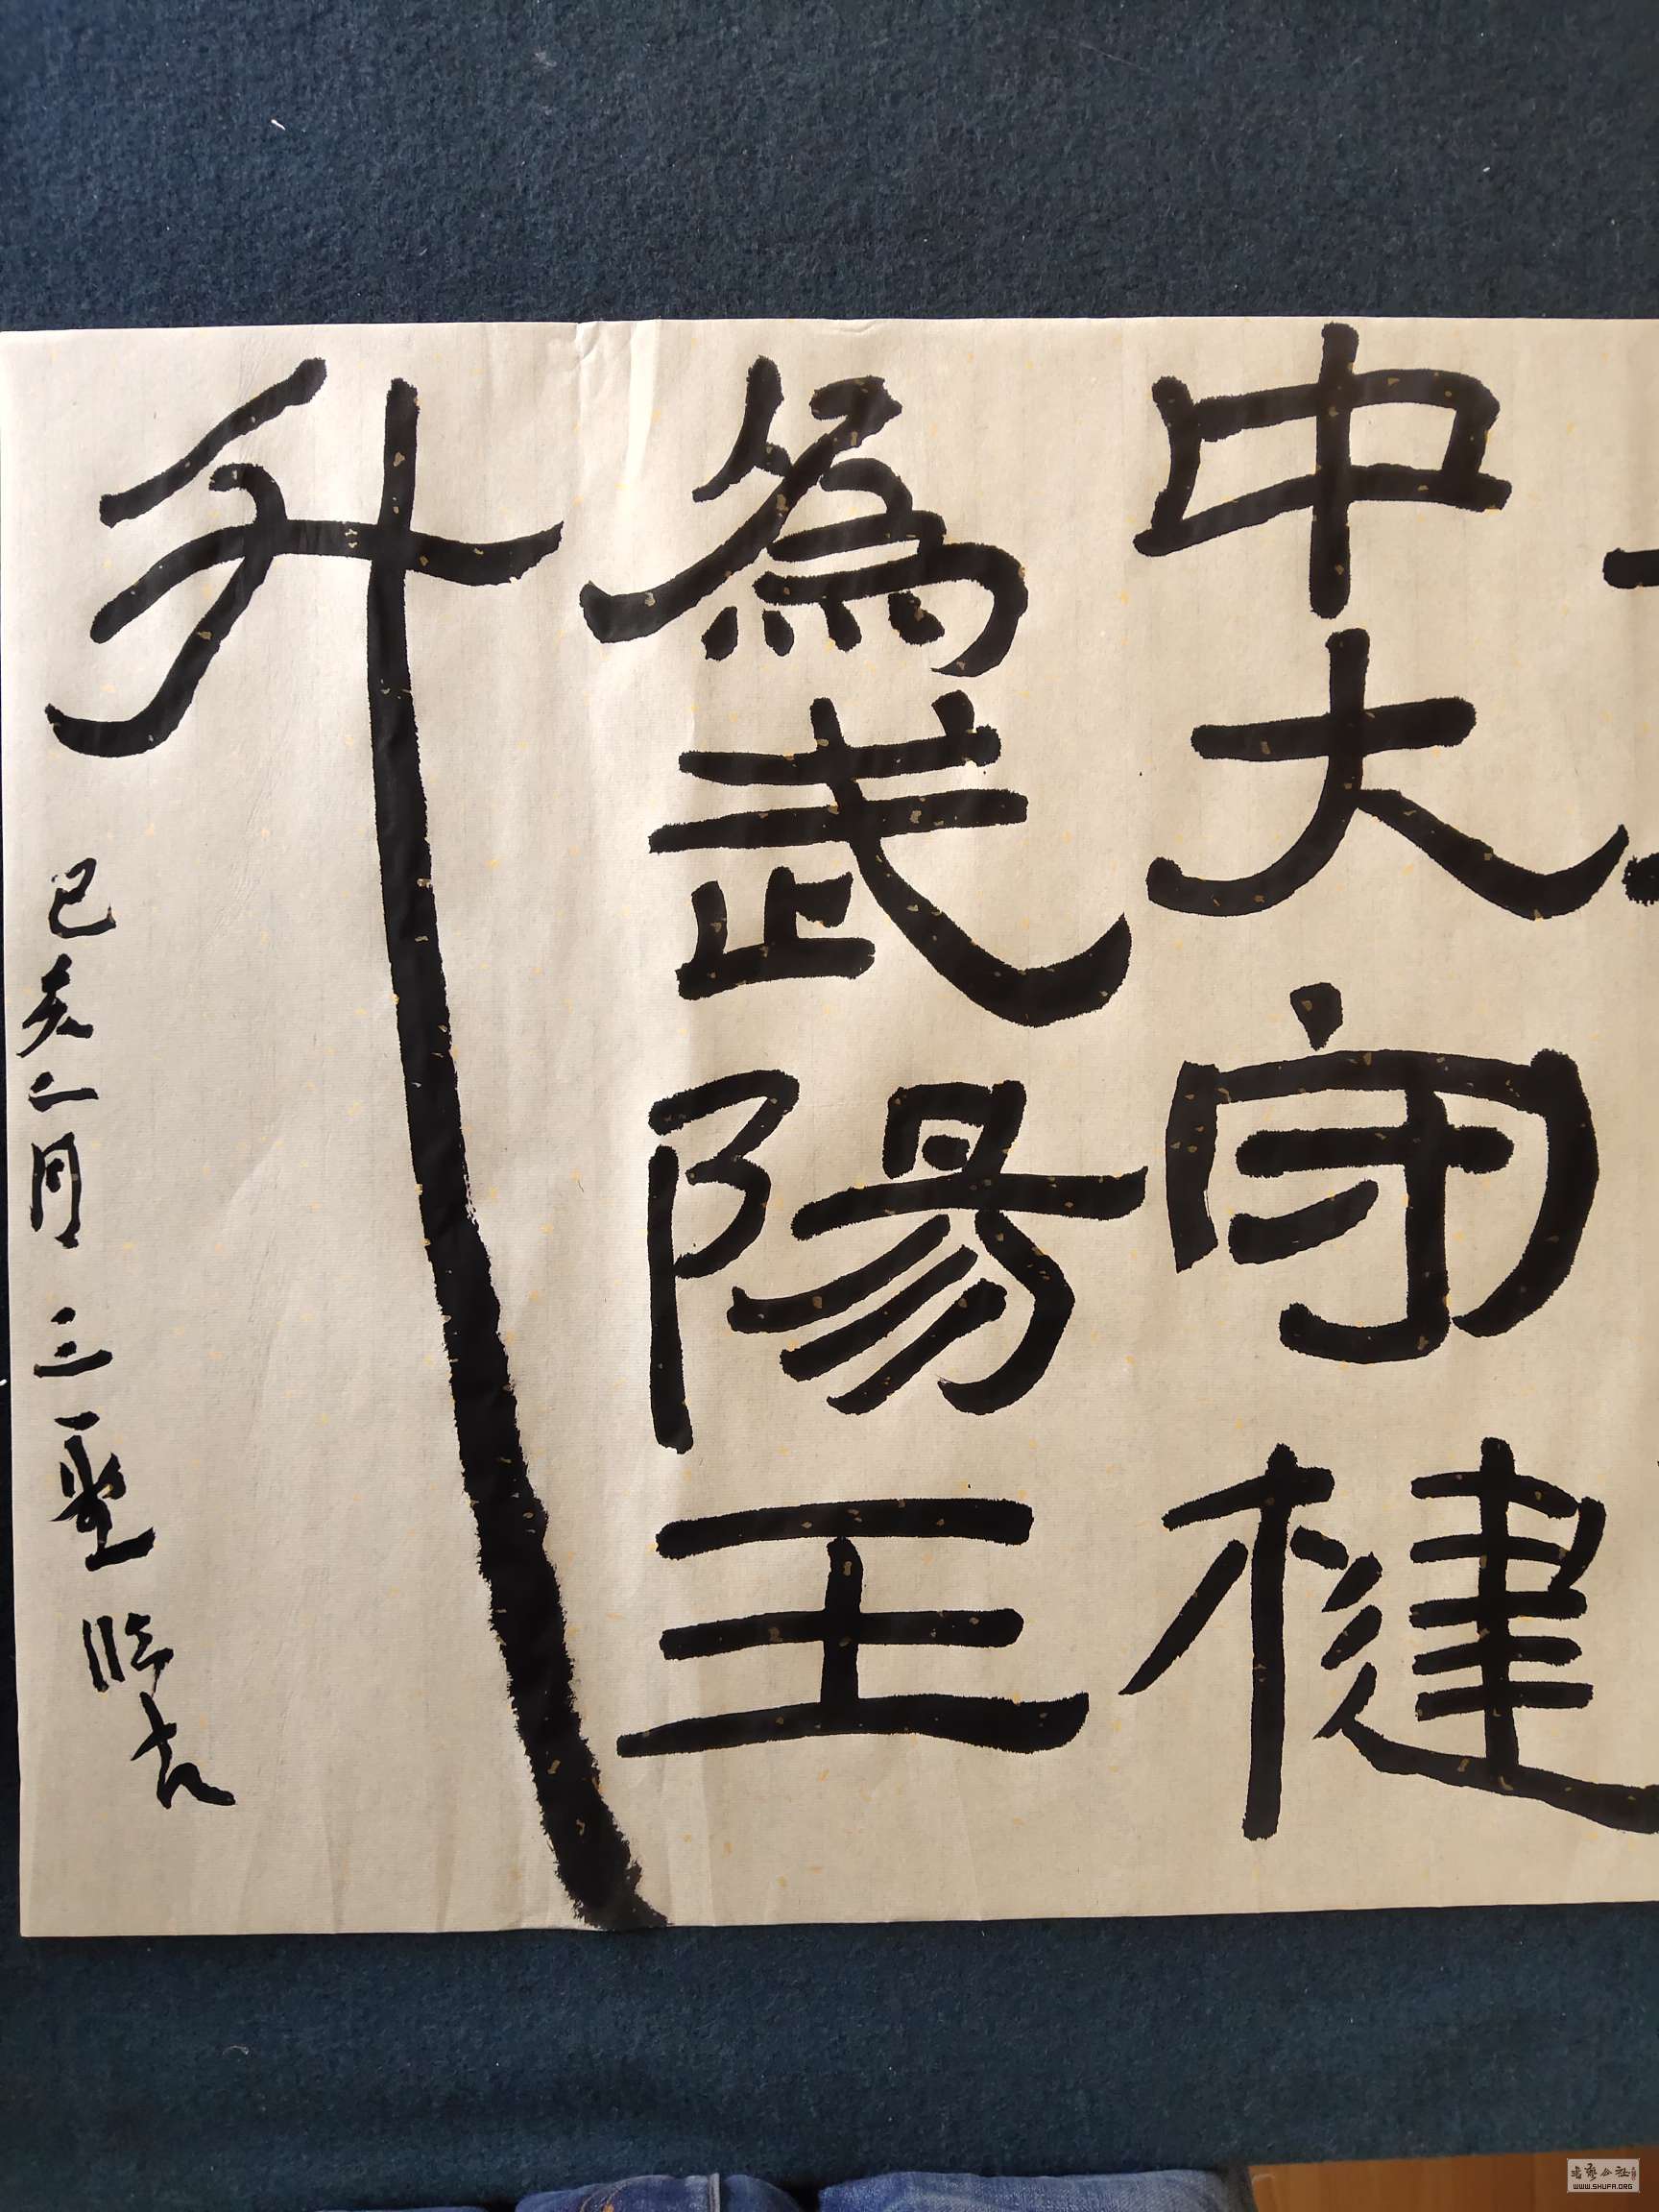 中大守楗
為武陽王
升
己亥二月 三聖 临古
书艺公社
WWW.SHUFA.ORG